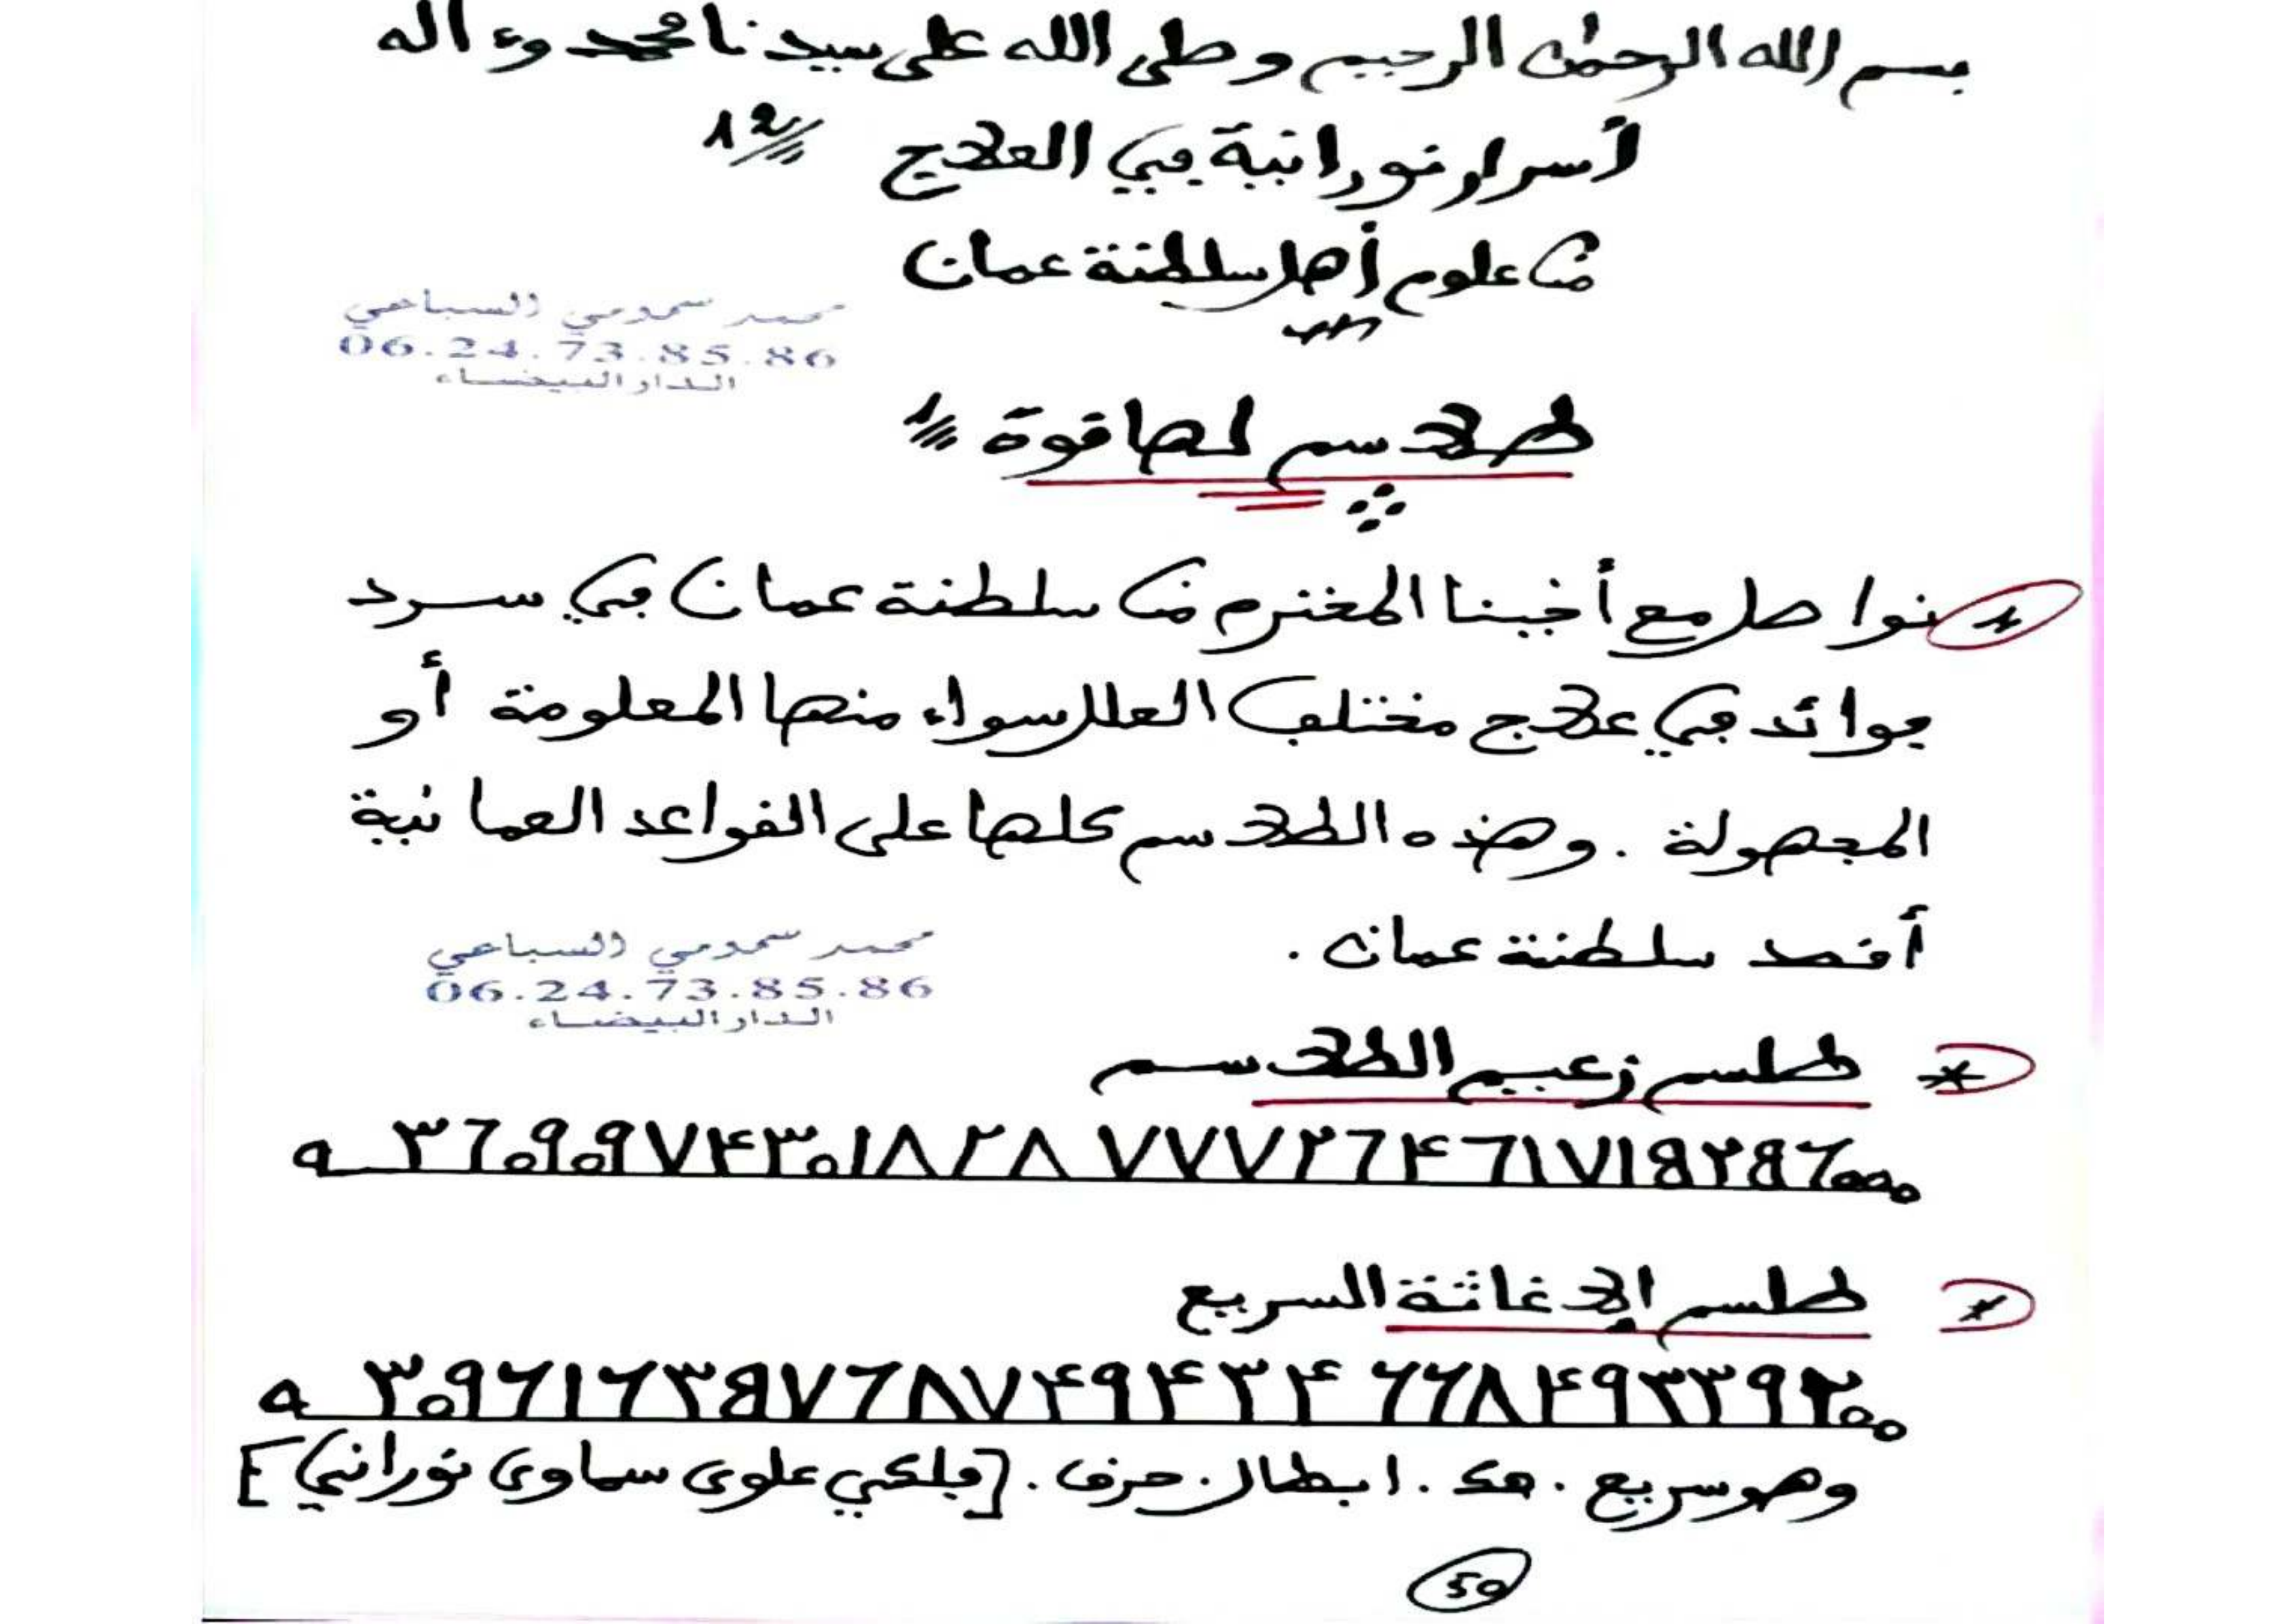 بسم الله الرحمٰن الرحيم وصلى الله على سيدنا محمد وءاله
أسرار نورانية في العلاج 12
من علوم أهل سلطنة عمان
محمد سمومي السباعي
06.24.73.85.86
الدار البيضاء
طلاسم لها قوة
* نواصل مع أخينا المغترم من سلطنة عمان في سرد
فوائد في علاج مختلف العلل سواء منها المعلومة أو
المجهولة . وهذه الطلاسم كلها على القواعد العمانية
أقصد سلطنة عمان .
محمد سمومي السباعي
06.24.73.85.86
الدار البيضاء
* طلسم زعيم الطلاسم
* طلسم الإغاثة السريع
وهو سريع . هك . ابطال . حرف . [فلكي علوي سماوي نوراني]
50